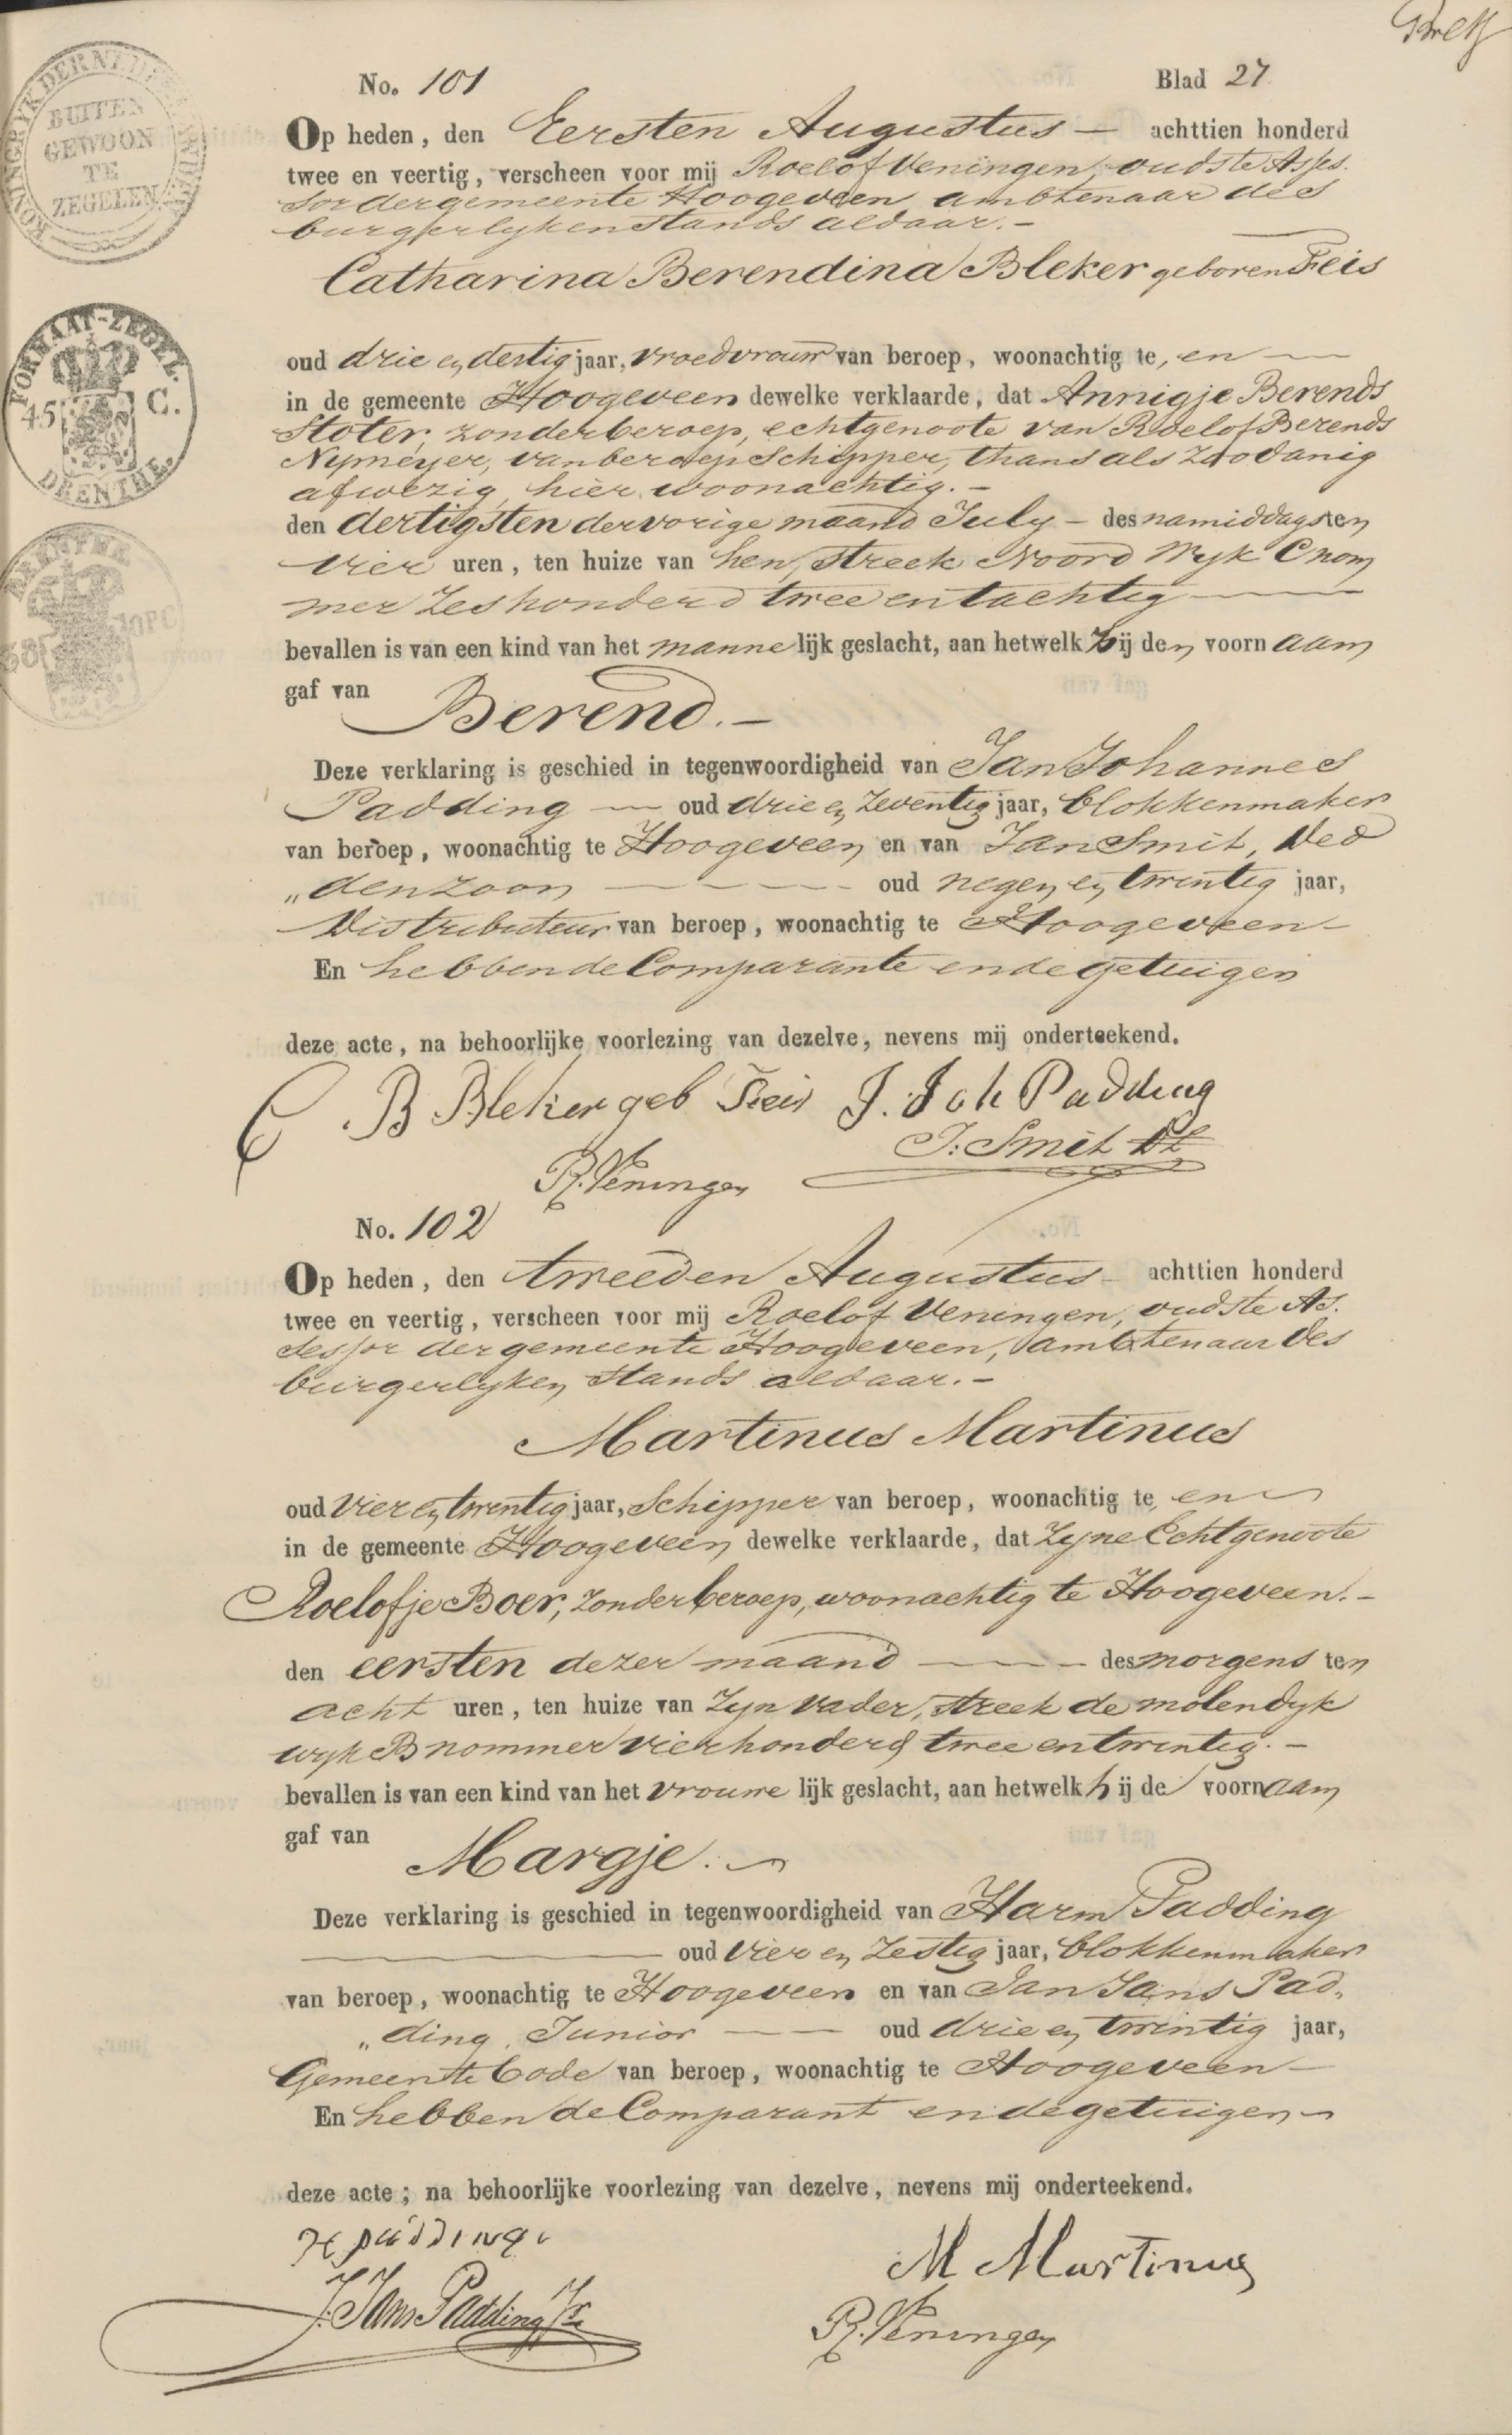 KONINGRYK DER NEDERLANDEN
BUITEN
GEWOON
TE
ZEGELEN
FORMAAT-ZEGEL.
45 C.
DRENTHE.
DRENTHE
38 10PC
No. 101 Blad 27
Op heden, den Eersten Augustus — achttien honderd
twee en veertig, verscheen voor mij Roelof Veningen, oudste Asses-
sor der gemeente Hoogeveen, ambtenaar des
burgerlyken Stands aldaar. –
Catharina Berendina Bleker geboren Feis
oud drie en dertig jaar, vroedvrouw van beroep, woonachtig te, en —
in de gemeente Hoogeveen dewelke verklaarde, dat Annigje Berends
Stoter, zonder beroep, echtgenoote van Roelof Berends
Nymeyer, van beroep Schipper, thans als zoodanig
afwezig, hier woonachtig. –
den dertigsten der vorige maand July – des namiddags ten
vier uren, ten huize van hen, Streek Noord Wyk C nom
mer Zes honderd twee en tachtig —
bevallen is van een kind van het mannelijk geslacht, aan hetwelk Zij den voornaam
gaf van Berend. –
Deze verklaring is geschied in tegenwoordigheid van Jan Johannes
Padding — oud drie en Zeventig jaar, blokkenmaker
van beroep, woonachtig te Hoogeveen en van Jan Smit, Ded
„denzoon — oud negen en twintig jaar,
Distributeur van beroep, woonachtig te Hoogeveen –
En hebben de Comparante en de getuigen
deze acte, na behoorlijke voorlezing van dezelve, nevens mij onderteekend.
C B Bleker geb Feis J. Joh Padding
J: Smit Dz
R. Veningen
No. 102
Op heden, den tweeden Augustus – achttien honderd
twee en veertig, verscheen voor mij Roelof Veningen, oudste As-
sessor der gemeente Hoogeveen, ambtenaar des
burgerlyken Stands aldaar. –
Martinus Martinus
oud Vier en twintig jaar, Schipper van beroep, woonachtig te, en —
in de gemeente Hoogeveen dewelke verklaarde, dat Zyne Echtgenoote
Roelofje Boer, zonder beroep, woonachtig te Hoogeveen. –
den eersten dezer maand — des morgens ten
acht uren, ten huize van Zyn Vader, Streek de molendyk
wyk B nommer vierhonderd twee en twintig. –
bevallen is van een kind van het vrouwelijk geslacht, aan hetwelk hij de voornaam
gaf van Margje. –
Deze verklaring is geschied in tegenwoordigheid van Harm Padding
— oud Vier en Zestig jaar, blokkenmaker
van beroep, woonachtig te Hoogeveen en van Jan Jans Pad-
„ding, Junior — oud drie en twintig jaar,
Gemeente bode van beroep, woonachtig te Hoogeveen –
En hebben de Comparant en de getuigen –
deze acte; na behoorlijke voorlezing van dezelve, nevens mij onderteekend.
H padding
M Martinus
J: Jans Padding Jr
R. Veningen